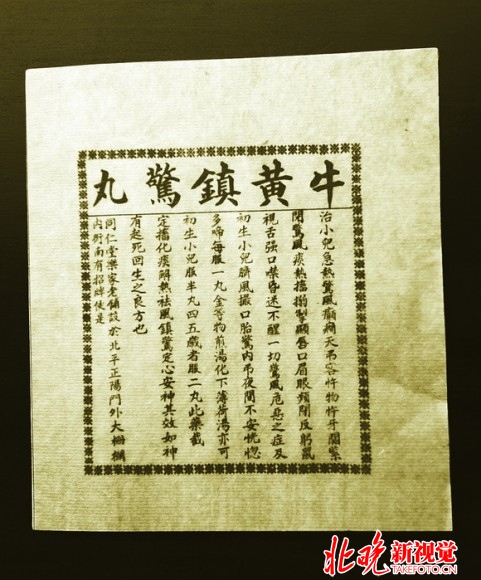 牛黄鎮驚丸
治小兒急熱驚風癲癇天弔客忤物忤牙關緊
閉驚風痰熱搐搦掣顫唇口眉眼頻閉反躬鼠
視舌强口噤昏迷不醒一切驚風危惡之症及
初生小兒臍風撮口胎驚内弔夜間不安恍惚
多啼每服一丸金等物煎湯化下薄荷湯亦可
初生小兒服半丸四五歲者服二丸此藥截
定搐化痰解熱祛風鎮驚定心安神其效如神
有起死回生之良方也
同仁堂樂家老舖設於北平正陽門外大柵欄
内街南有招牌便是
北晚新视觉
TAKEFOTO.CN